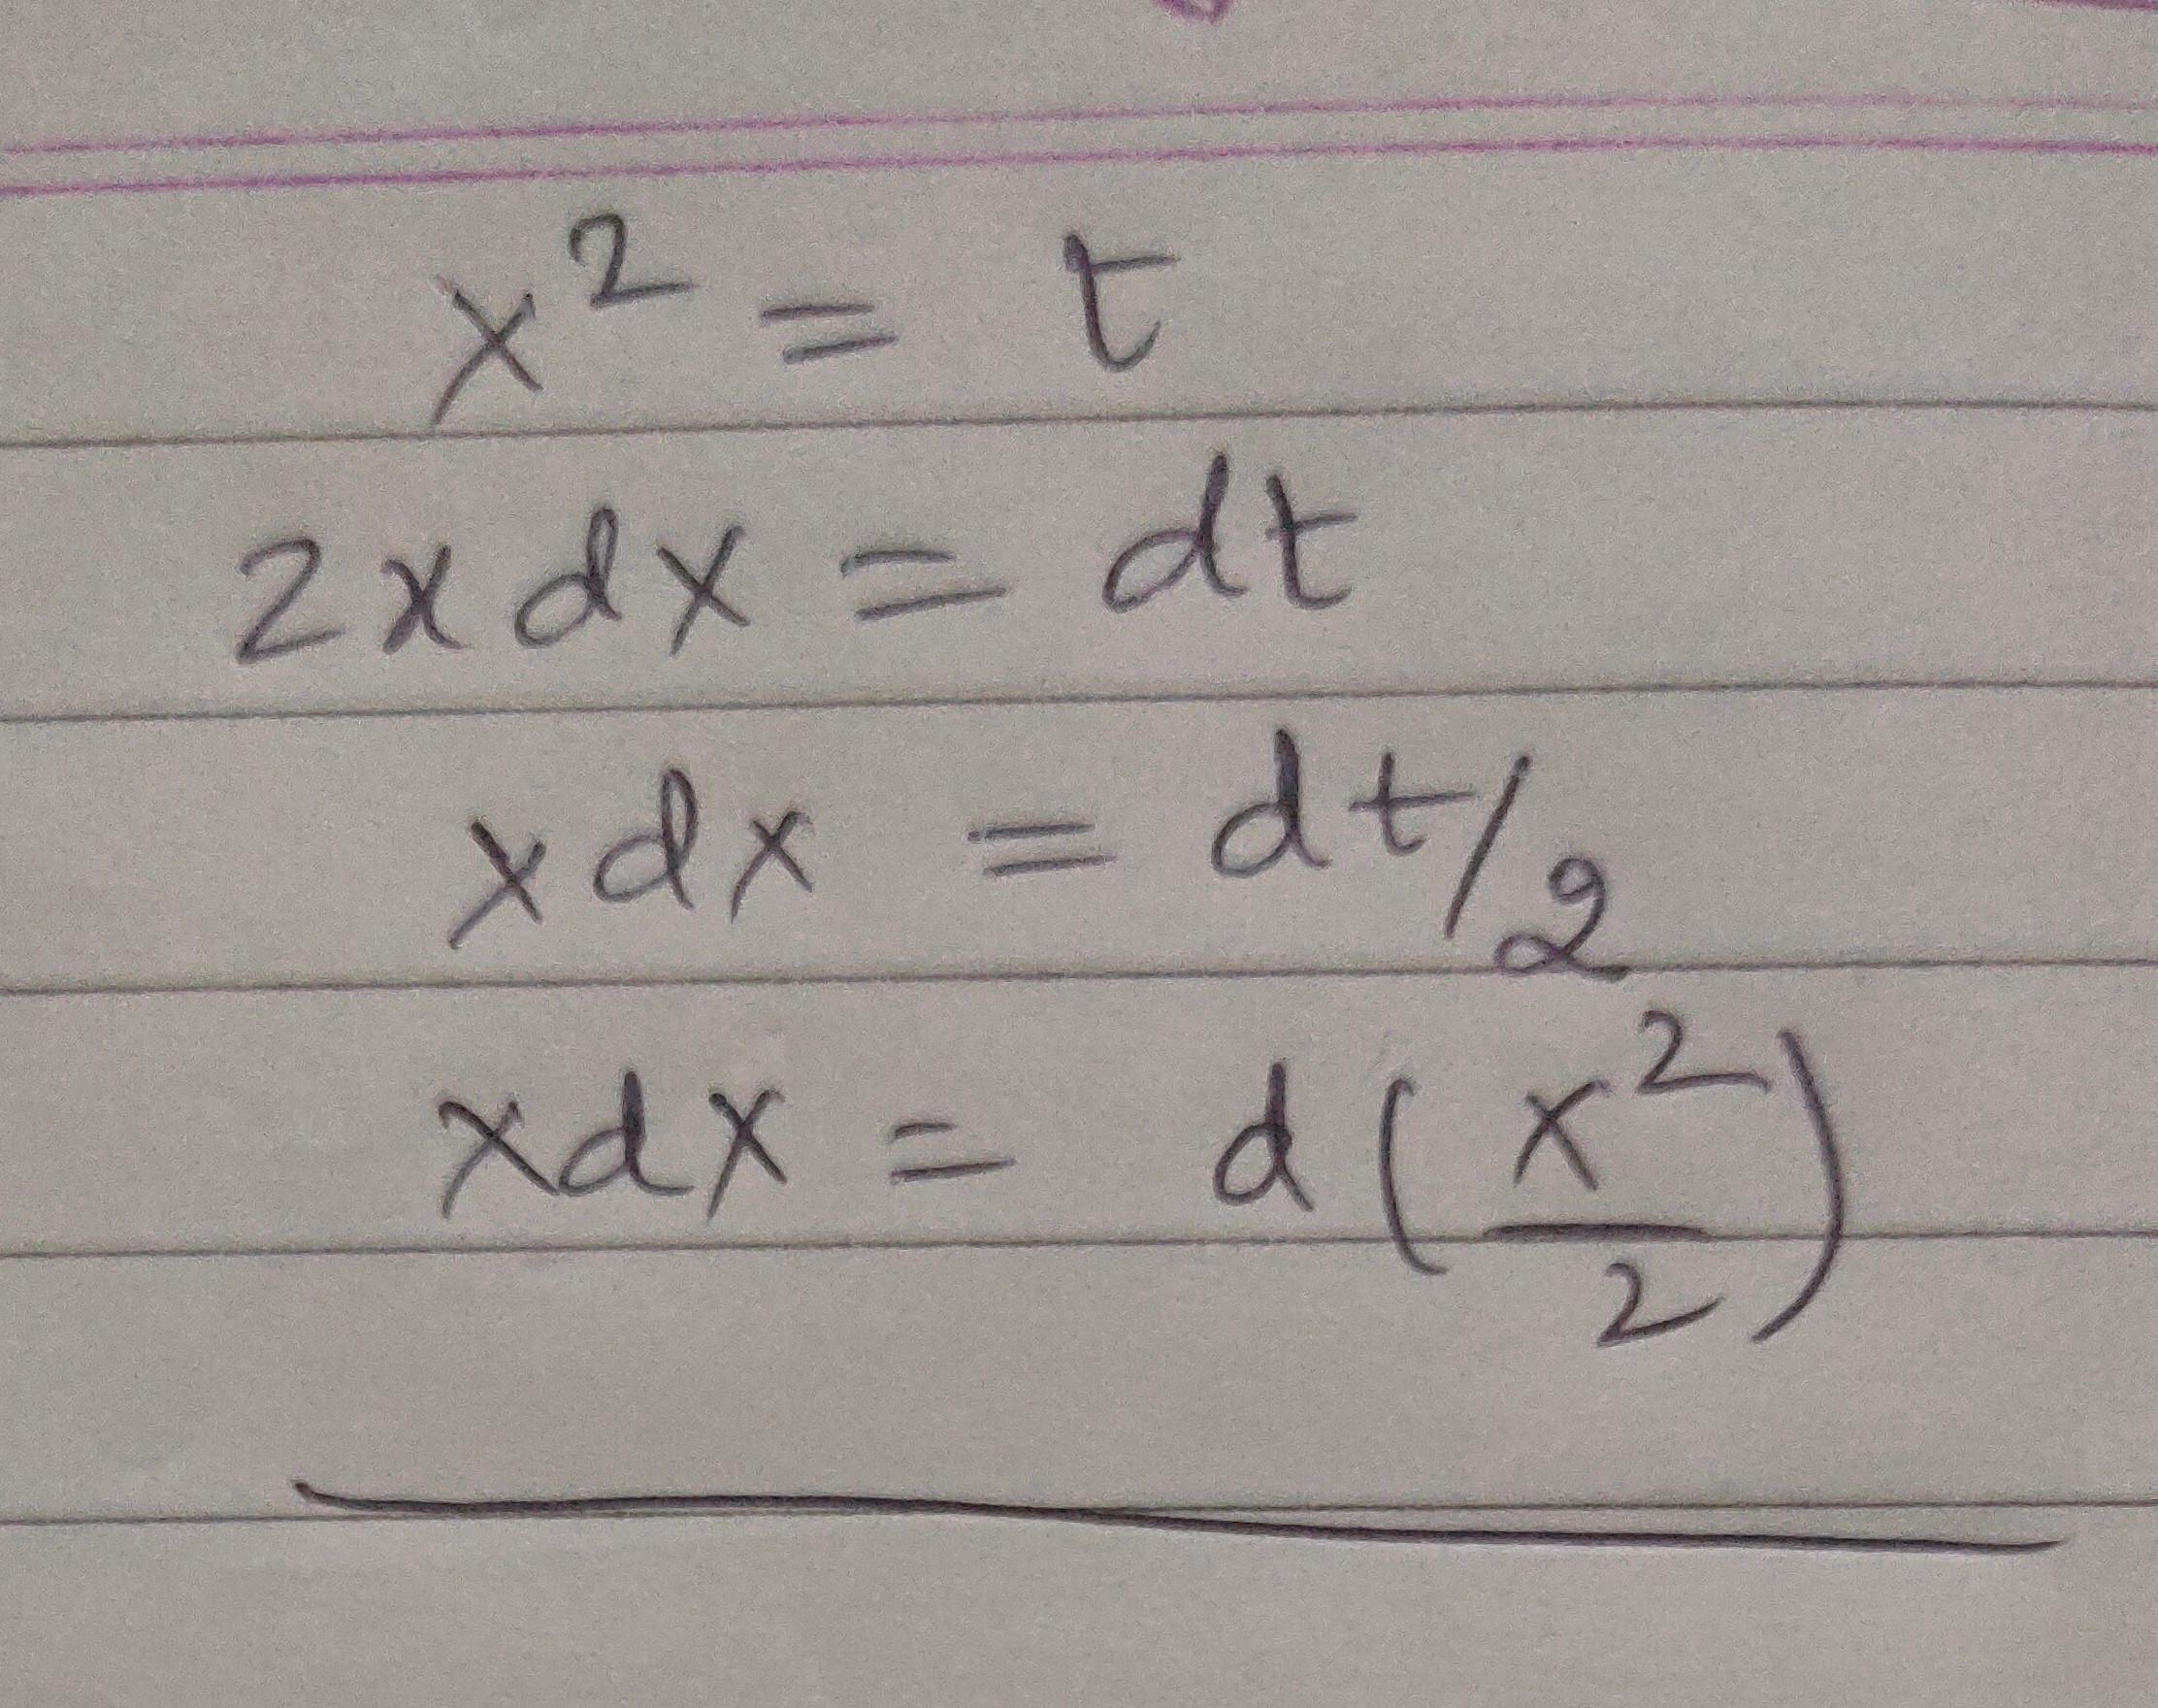 x² = t
2x dx = dt
x dx = dt/2
x dx = d(x²/2)